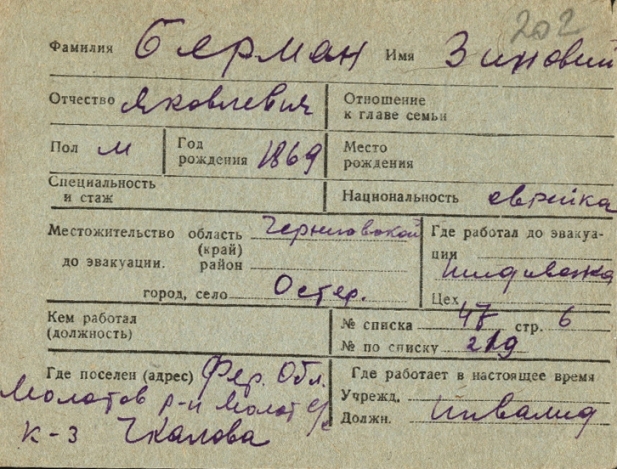 202
Фамилия Берман Имя Зиновий
Отчество Яковлевич Отношение к главе семьи
Пол М Год рождения 1869 Место рождения
Специальность и стаж Национальность еврейка
Местожительство область Черниговской Где работал до эвакуа-
(край) ция
до эвакуации. район
город, село Остер. Цех
Кем работал № списка 47 стр. 6
(должность) № по списку 219
Где поселен (адрес) Фер. Обл. Где работает в настоящее время
Молотов р-н Молот Учрежд.
к-з Чкалова Должн. Инвалид